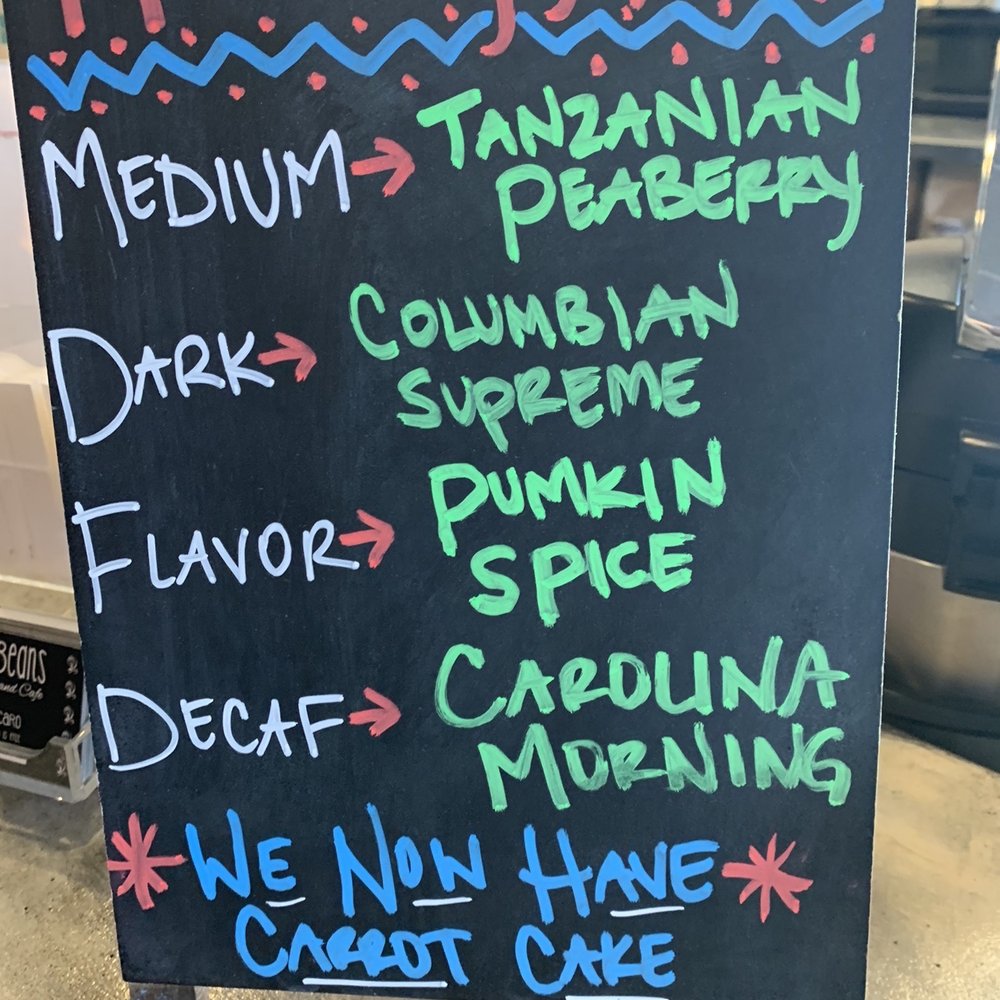 MEDIUM → TANZANIAN
PEABERRY
DARK → COLUMBIAN
SUPREME
FLAVOR → PUMKIN
SPICE
DECAF → CAROLINA
MORNING
* WE NOW HAVE *
CARROT CAKE
Beans
and Cafe